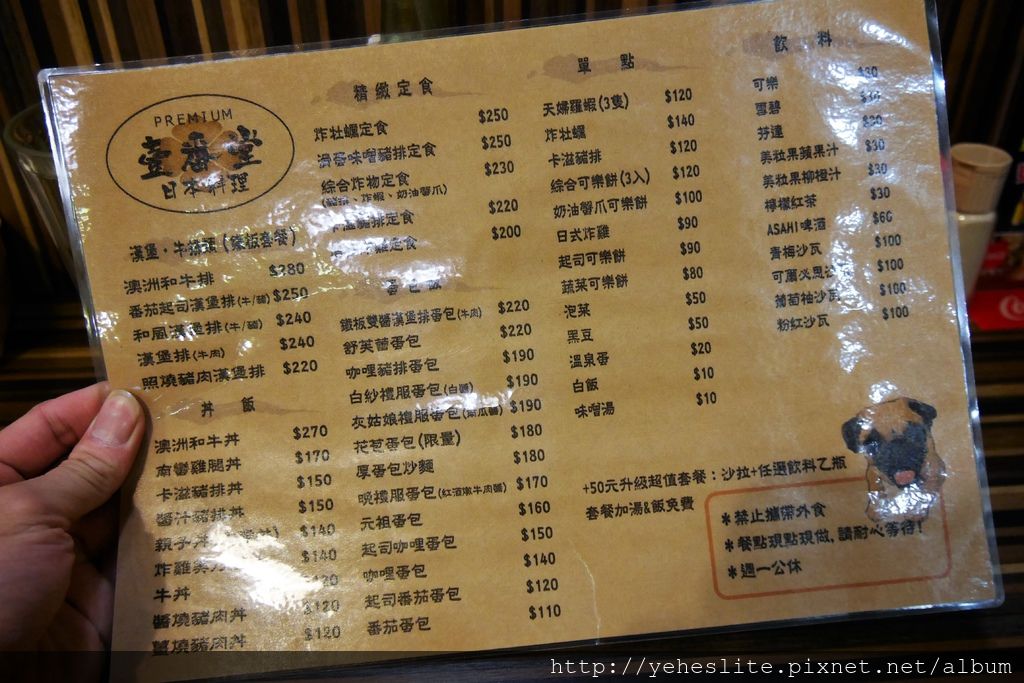 PREMIUM
壹番堂
日本料理
漢堡・牛排類(鐵板套餐)
澳洲和牛排 $380
番茄起司漢堡排(牛/豬) $250
和風漢堡排(牛/豬) $240
漢堡排(牛肉) $240
照燒豬肉漢堡排 $220
丼飯
澳洲和牛丼 $270
南蠻雞腿丼 $170
卡滋豬排丼 $150
醬汁豬排丼 $150
親子丼 $140
炸雞 $140
牛丼
醬燒豬肉丼 $120
薑燒豬肉丼 $120
精緻定食
炸牡蠣定食 $250
滑蛋味噌豬排定食 $250
綜合炸物定食 $230
(豬排、炸蝦、奶油蟹爪)
卡滋豬排定食 $220
雞定食 $200
蛋包飯
鐵板雙醬漢堡排蛋包(牛肉) $220
舒芙蕾蛋包 $220
咖哩豬排蛋包 $190
白紗禮服蛋包(白醬) $190
灰姑娘禮服蛋包(南瓜醬) $190
花苞蛋包(限量) $180
厚蛋包炒麵 $180
晚禮服蛋包(紅酒燉牛肉醬) $170
元祖蛋包 $160
起司咖哩蛋包 $150
咖哩蛋包 $140
起司番茄蛋包 $120
番茄蛋包 $110
單點
天婦羅蝦(3隻) $120
炸牡蠣 $140
卡滋豬排 $120
綜合可樂餅(3入) $120
奶油蟹爪可樂餅 $100
日式炸雞 $90
起司可樂餅 $90
蔬菜可樂餅 $80
泡菜 $50
黑豆 $50
溫泉蛋 $20
白飯 $10
味噌湯 $10
飲料
可樂 $30
雪碧 $30
芬達 $30
美粒果蘋果汁 $30
美粒果柳橙汁 $30
檸檬紅茶 $30
ASAHI啤酒 $60
青梅沙瓦 $100
可爾必思沙瓦 $100
葡萄柚沙瓦 $100
粉紅沙瓦 $100
+50元升級超值套餐：沙拉+任選飲料乙瓶
套餐加湯&飯免費
*禁止攜帶外食
*餐點現點現做，請耐心等待!
*週一公休
http://yeheslite.pixnet.net/album